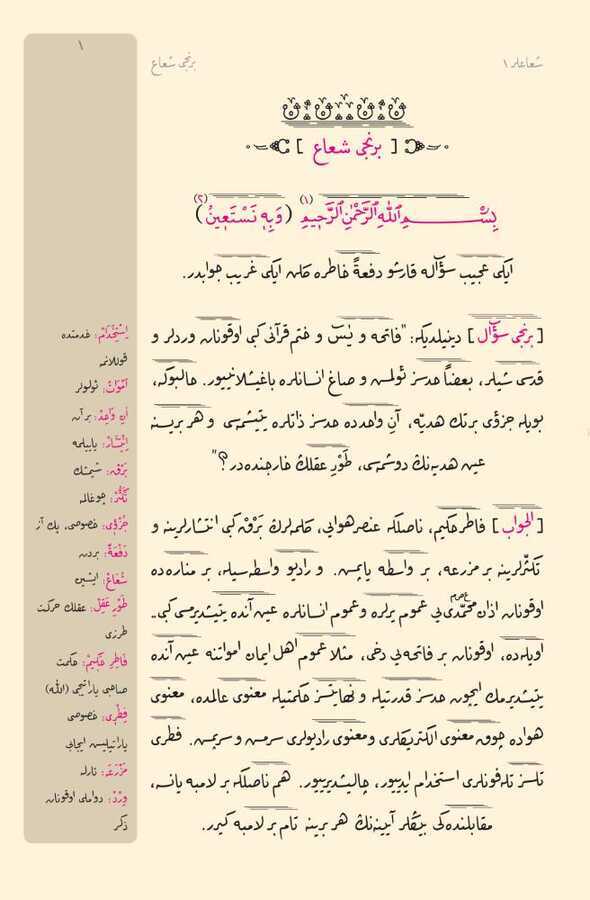 شعاعلر ١
برنجی شعاع
١
[ برنجی شعاع ]
بِسْمِ اللّٰهِ الرَّحْمٰنِ الرَّحٖيمِ (١) (وَبِهٖ نَسْتَعٖينُ) (٢)
ایکی عجیب سؤاله قارشو دفعةً خاطره کلن ایکی غریب جوابدر.
[ برنجی سؤال ] دینیلدیکه: "فاتحه و یٰسٓ و ختم قرآنی کبی اوقونان وردلر و
قدسی شیلر، بعضاً حدسز ئولمش و صاغ انسانلره باغیشلانییور. حالبوکه،
بویله جزؤی برتك هدیّه، آنِ واحدده حدسز ذاتلره یتیشمسی و هر برینه
عین هدیه‌نڭ دوشمسی، طَوْرِ عقلڭ خارجنده‌در؟"
[ الجواب ] فاطر حکیم، ناصلکه عنصر هوایی، کلمه‌لرك بَرْقْ کبی انتشارلرینه و
تکثّرلرینه بر مزرعه، بر واسطه یاپمش. و رادیو واسطه‌سیله، بر مناره‌ده
اوقونان اذان محمّدی عصم یی عموم یرلره و عموم انسانلره عین آنده یتیشدیرمسی کبی..
اویله‌ده، اوقونان بر فاتحه یی دخی، مثلا عموم اهل ایمان امواتنه عین آنده
یتیشدیرمك ایچون حدسز قدرتیله و نهایتسز حکمتیله معنوی عالمده، معنوی
هواده چوق معنوی الکتریکلری و معنوی رادیولری سرمش و سرپمش. فطری
تلسز تله‌فونلری استخدام ایدییور، چالیشدیرییور. هم ناصلکه بر لامبه یانسه،
مقابلنده‌کی بیڭلر آیینه‌نڭ هر برینه تام بر لامبه کیرر.
اِسْتِخْدَامْ: خدمتده
قوللانمه
اَمْوَاتْ: ئولولر
آنِ وَاحِدْ: بر آن
اِنْتِشَارْ: یاییلمه
بَرْقْ: شیمشك
تَكَثُّرْ: چوغالمه
جُزْؤِی: خصوصی، پك آز
دَفْعَةً: بردن
شُعَاعْ: ایشین
طَوْرِ عَقِلْ: عقلك حرکت
طرزی
فَاطِرِ حَكِيمْ: حکمت
صاحبی یاراتیجی (الله)
فِطْرِی: خصوصی
یاراتیلیش ایجابی
مَزْرَعَه: تارلە
وِرْدْ: دواملی اوقونان
ذکر